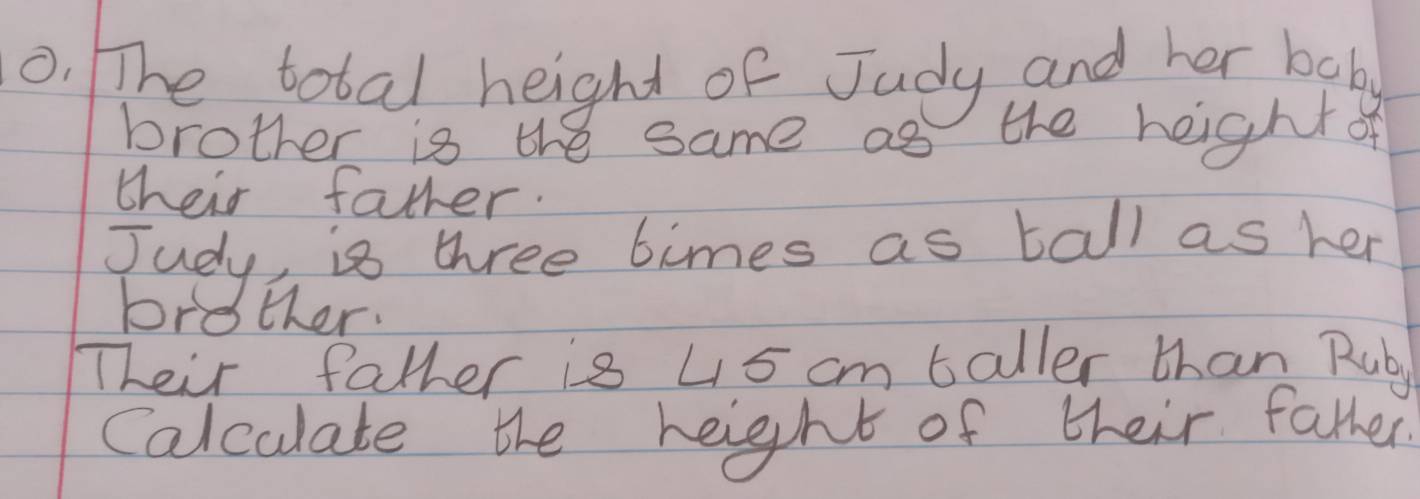 10. The total height of Judy and her baby
brother is the same as the height of
their father.
Judy, is three times as tall as her
brother.
Their father is 45 cm taller than Ruby
Calculate the height of their father.